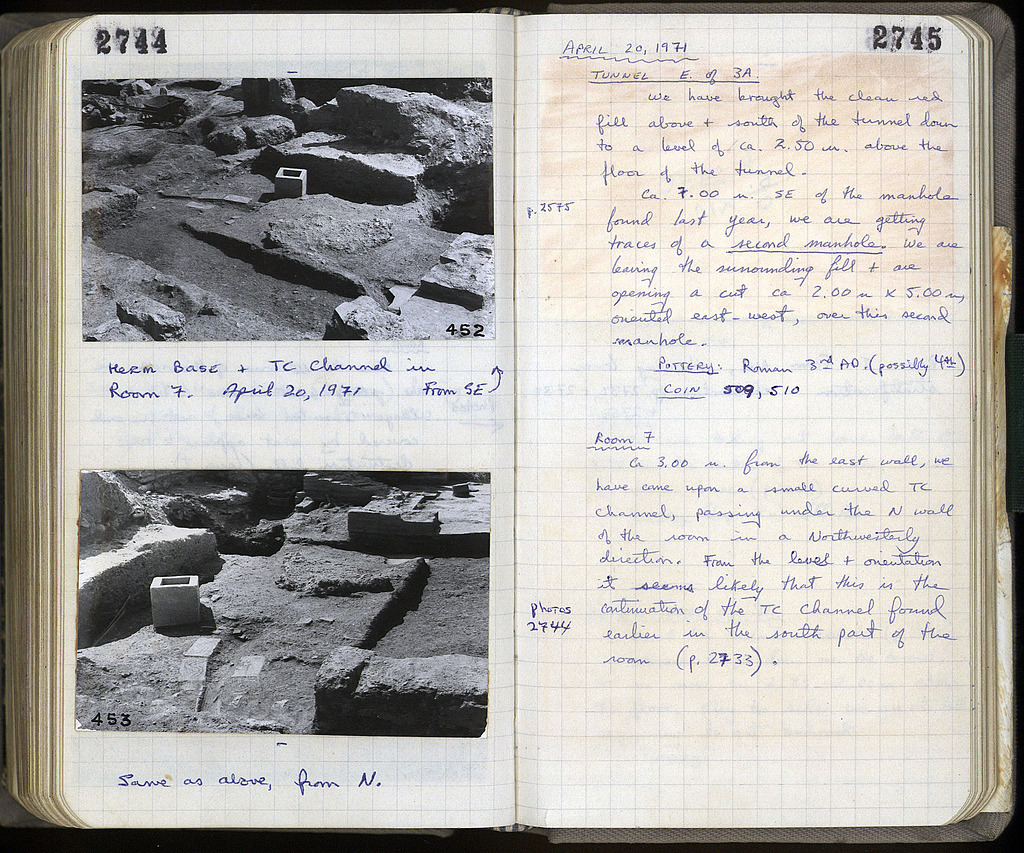 2744
452
Herm Base + TC Channel in
Room 7. April 20, 1971 From SE
453
Same as above, from N.
2745
April 20, 1971
Tunnel E. of 3A.
We have brought the clean red
fill above + south of the tunnel down
to a level of ca. 2.50 m. above the
floor of the tunnel.
Ca. 7.00 m. SE of the manhole
p. 2575
found last year, we are getting
traces of a second manhole. We are
leaving the surrounding fill + are
opening a cut ca 2.00 m x 5.00 m,
oriented east-west, over this second
manhole.
Pottery: Roman 3rd AD. (possibly 4th)
Coin 509, 510
Room 7
Ca 3.00 m. from the east wall, we
have come upon a small curved TC
Channel, passing under the N wall
of the room in a Northwesterly
direction. From the level + orientation
it seems likely that this is the
photos
2744
continuation of the TC Channel found
earlier in the south part of the
room (p. 2733).